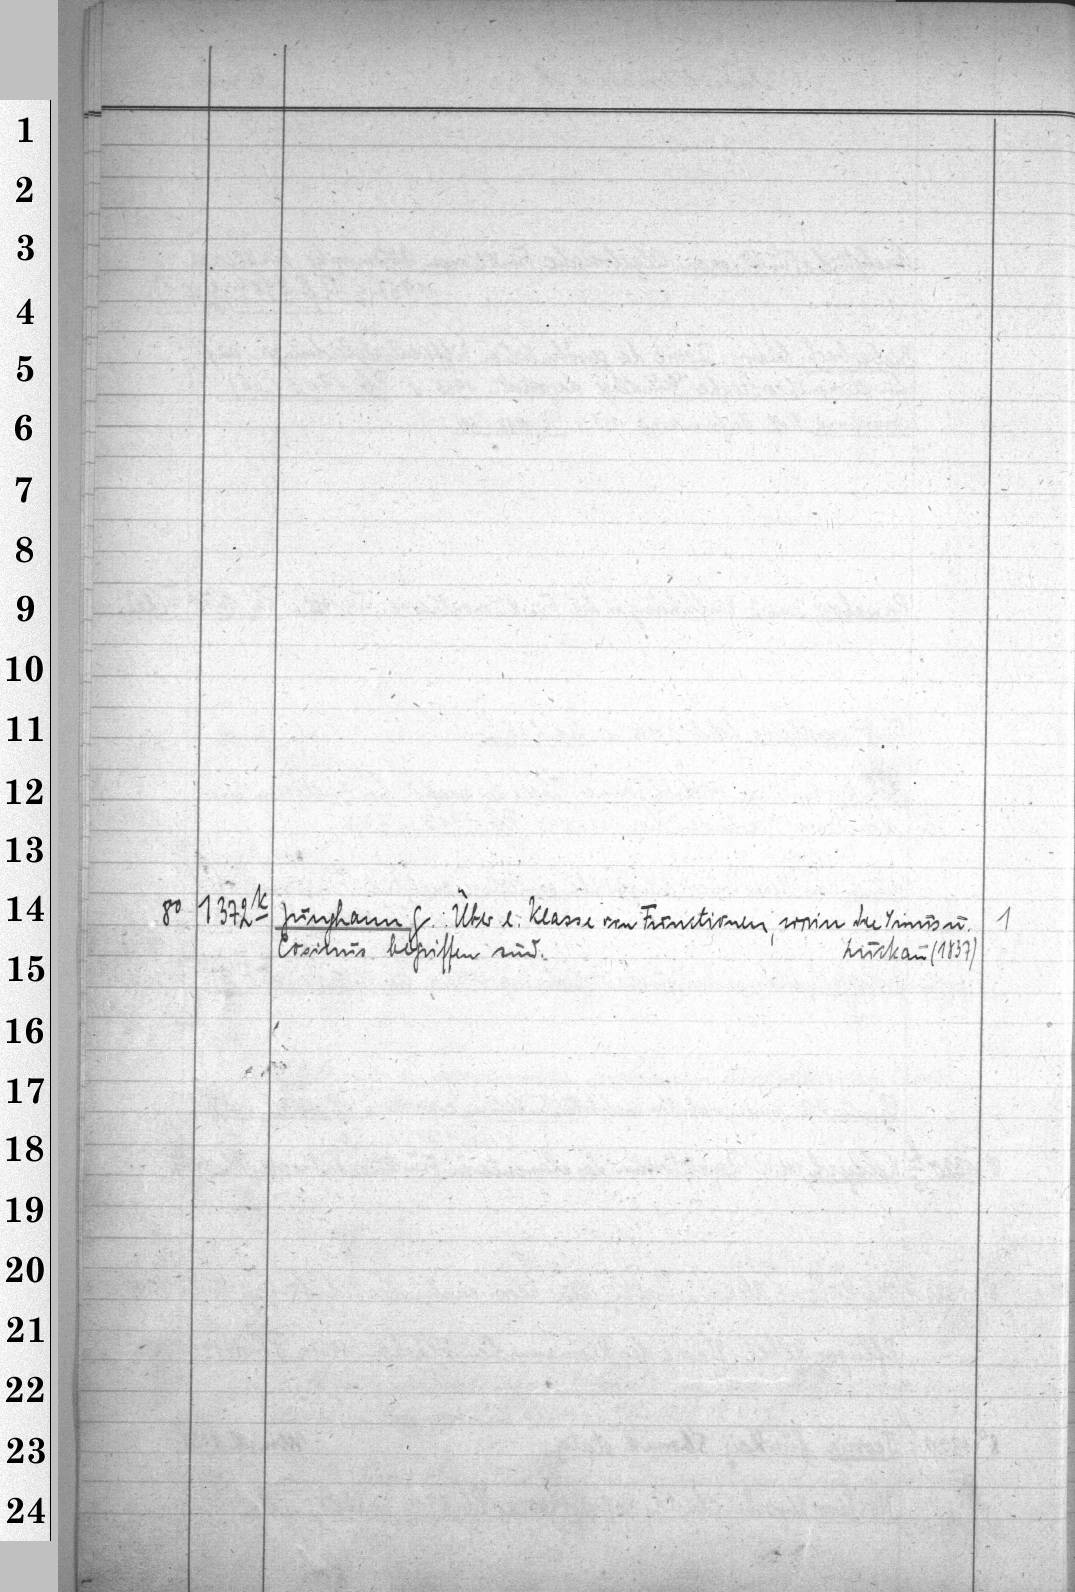 1
2
3
4
5
6
7
8
9
10
11
12
13
14
8° 1372 k Junghann G.: Über e. Klasse von Functionen, worin die Sinus u. 1
15
Cosinus begriffen sind. Luckau (1837)
16
17
18
19
20
21
22
23
24